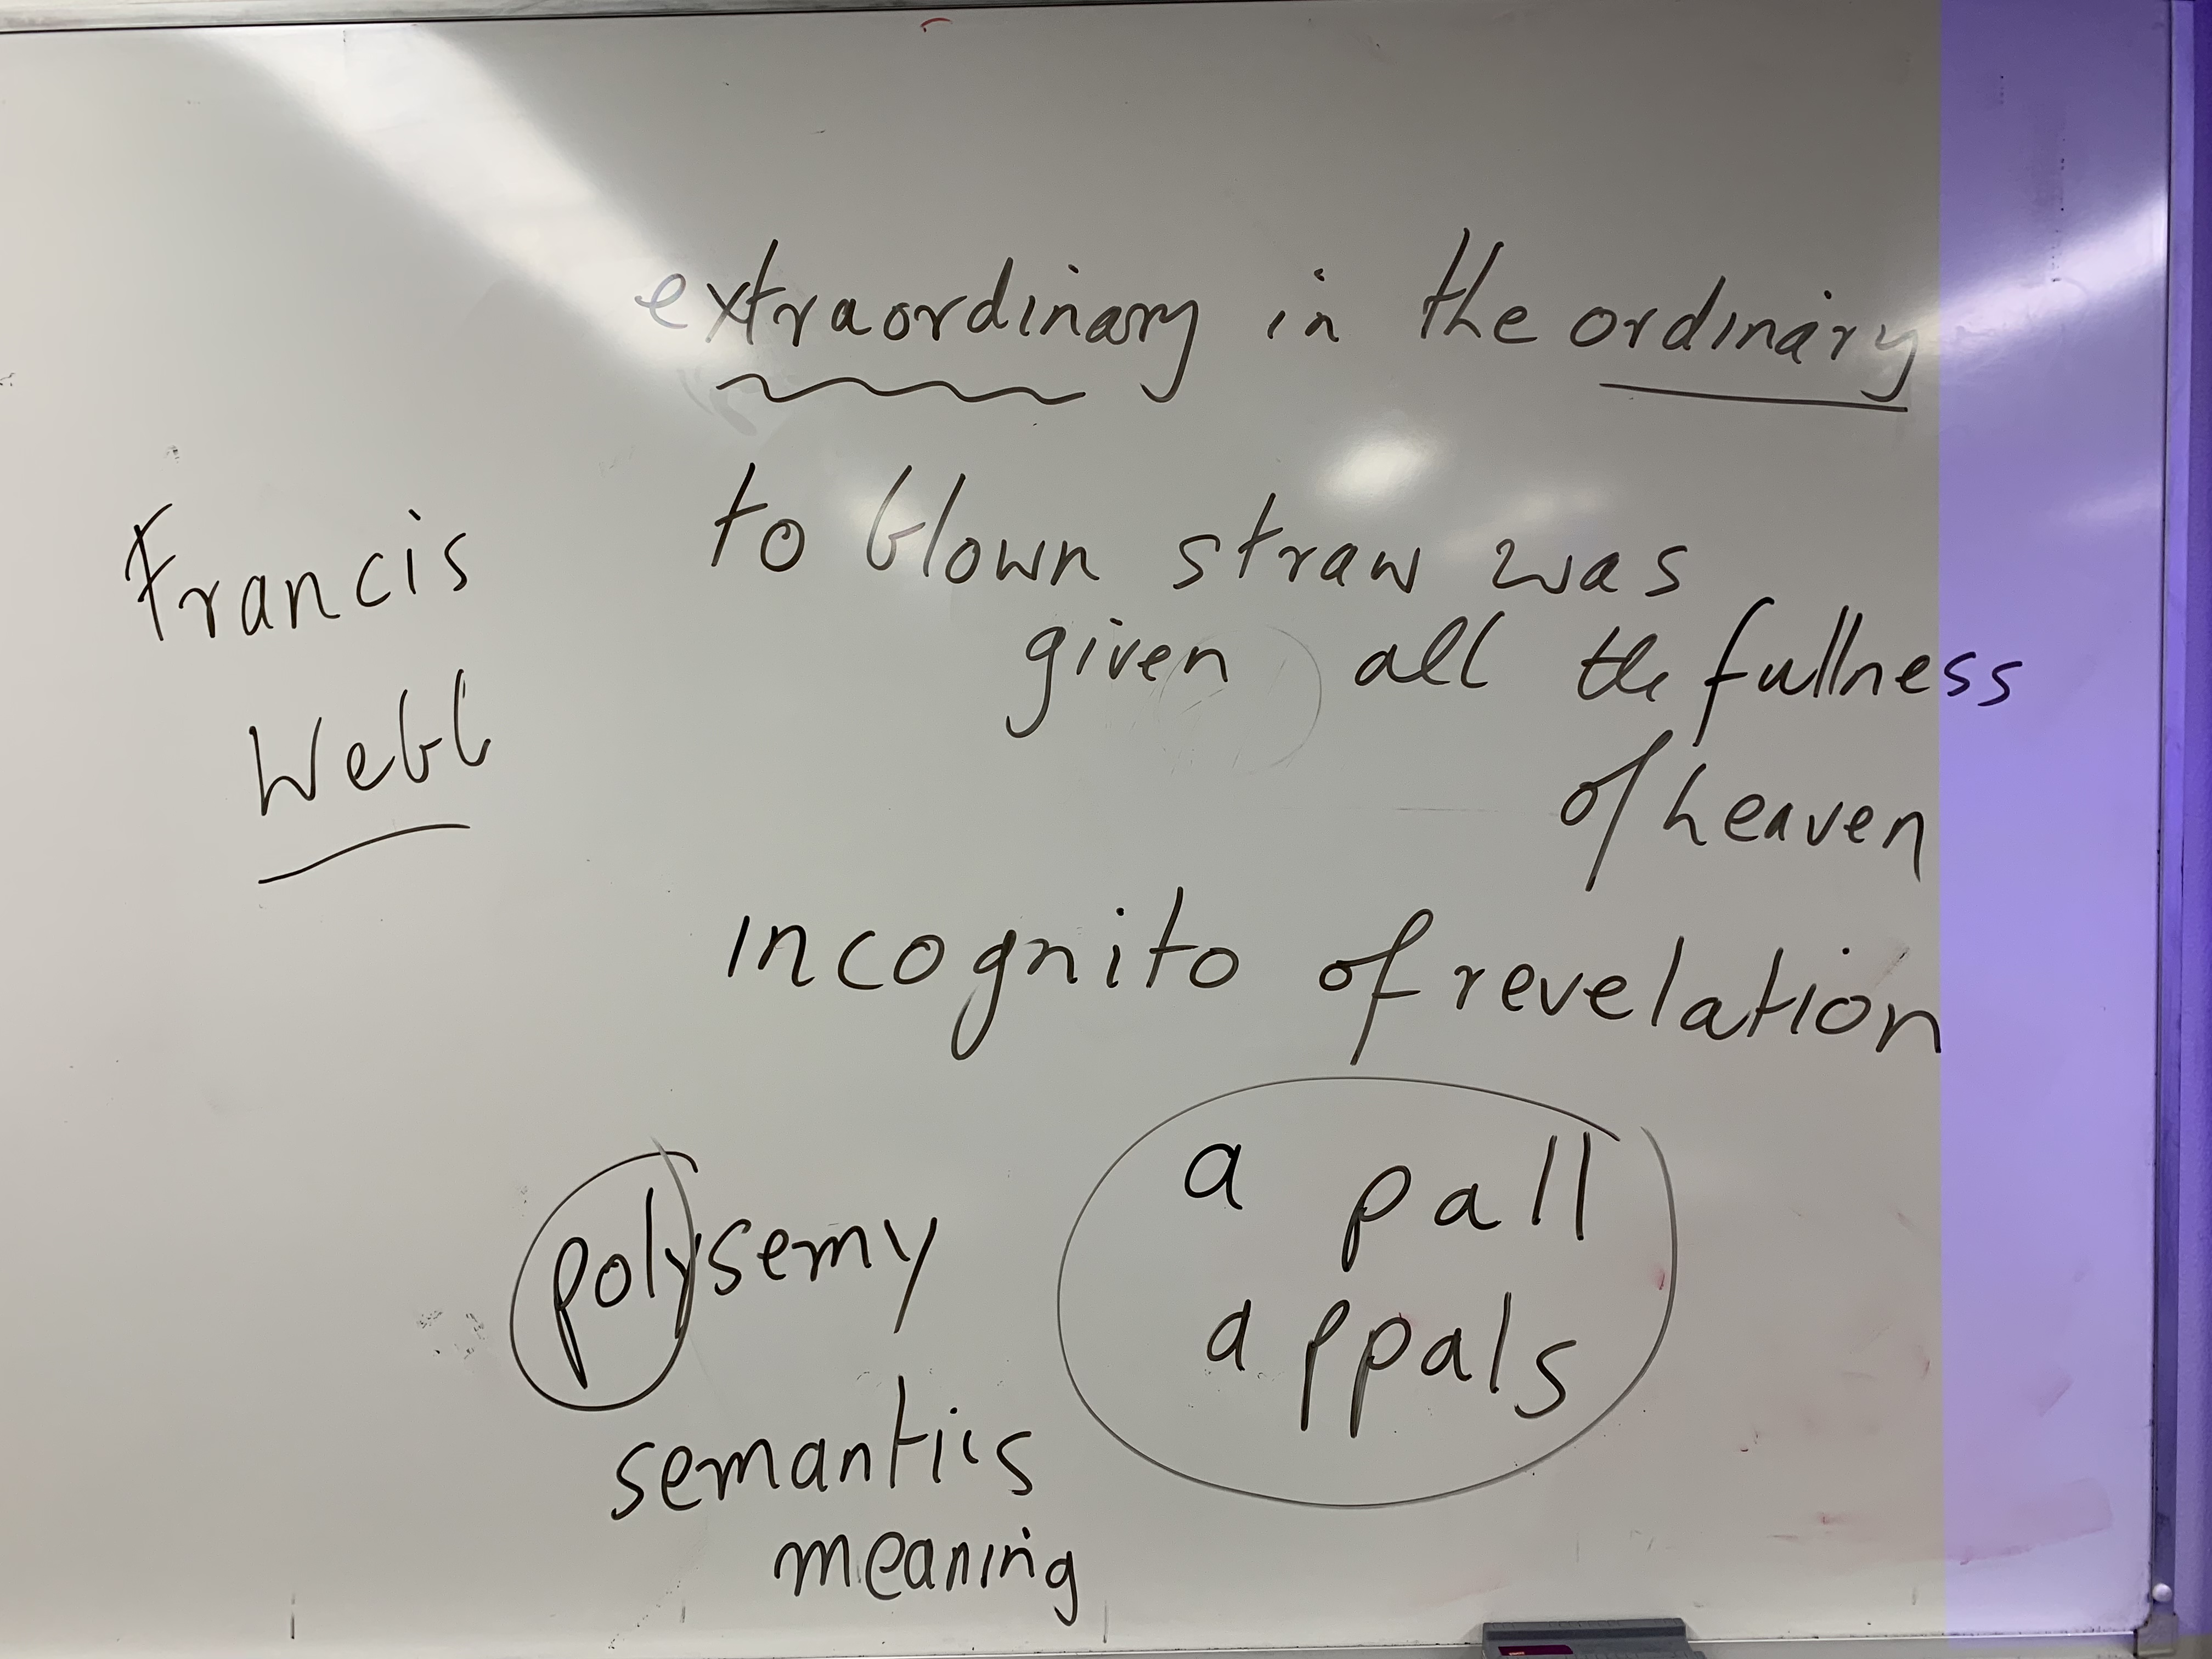 extraordinary in the ordinary
to blown straw was
given all the fullness
of heaven
Francis
Webb
incognito of revelation
a pall
appals
polysemy
semantics
meaning